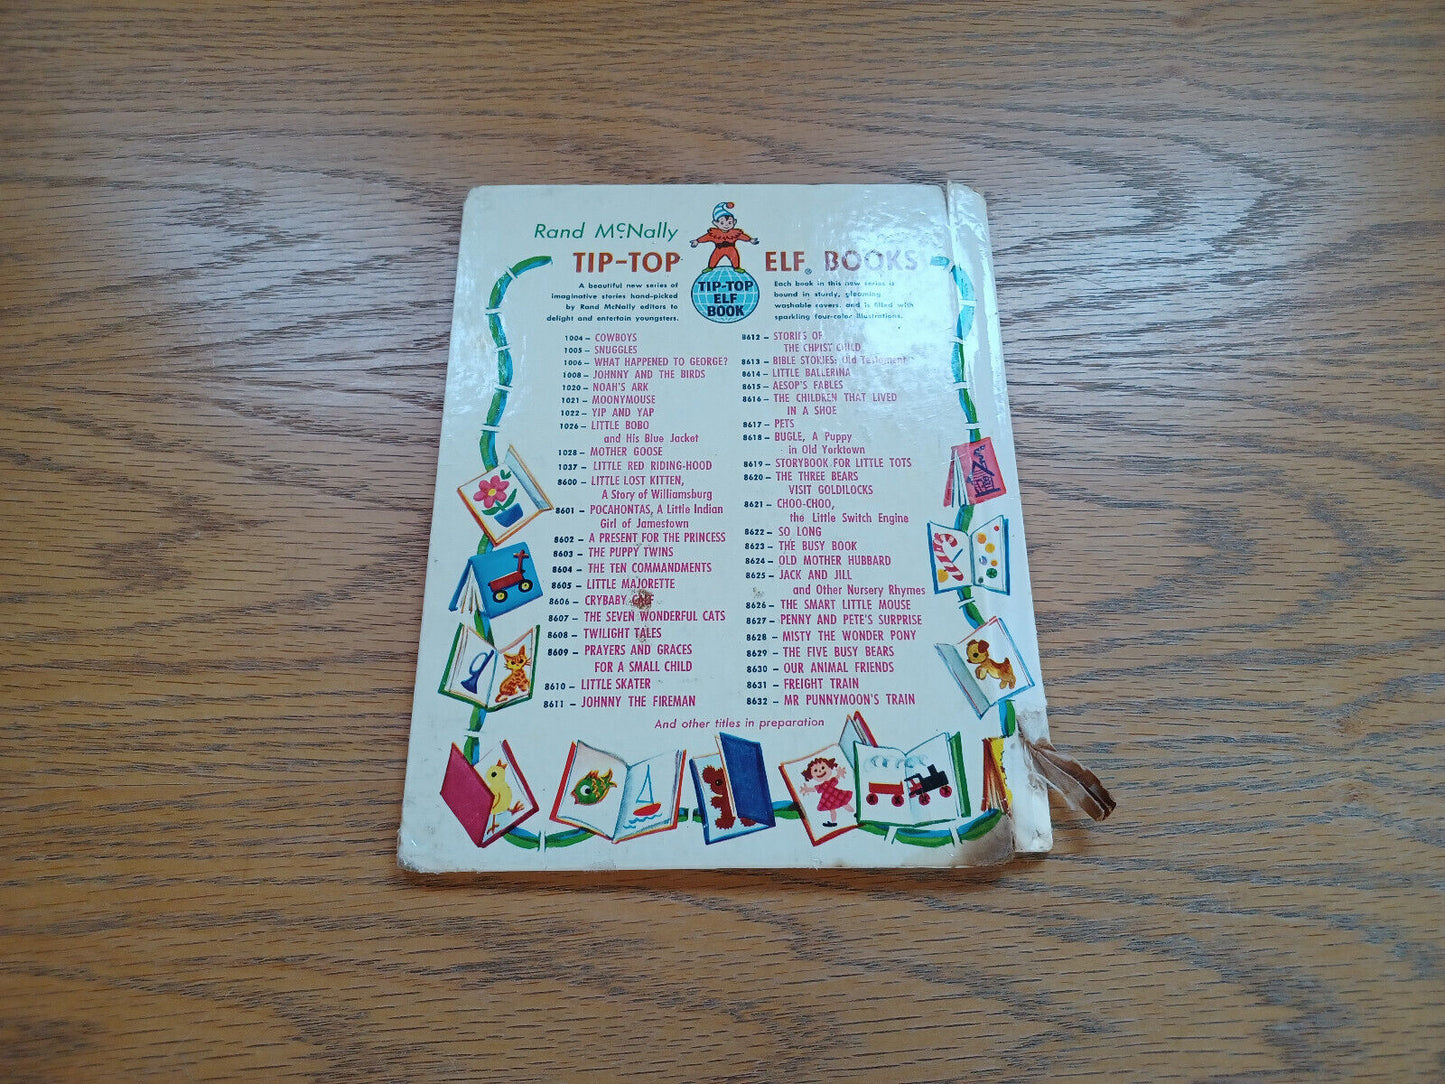 Rand McNally
TIP-TOP ELF® BOOKS
TIP-TOP
ELF
BOOK
A beautiful new series of
imaginative stories hand-picked
by Rand McNally editors to
delight and entertain youngsters.
Each book in this new series is
bound in sturdy, gleaming
washable covers, and is filled with
sparkling four-color illustrations.
1004 – COWBOYS
1005 – SNUGGLES
1006 – WHAT HAPPENED TO GEORGE?
1008 – JOHNNY AND THE BIRDS
1020 – NOAH'S ARK
1021 – MOONYMOUSE
1022 – YIP AND YAP
1026 – LITTLE BOBO
and His Blue Jacket
1028 – MOTHER GOOSE
1037 – LITTLE RED RIDING-HOOD
8600 – LITTLE LOST KITTEN,
A Story of Williamsburg
8601 – POCAHONTAS, A Little Indian
Girl of Jamestown
8602 – A PRESENT FOR THE PRINCESS
8603 – THE PUPPY TWINS
8604 – THE TEN COMMANDMENTS
8605 – LITTLE MAJORETTE
8606 – CRYBABY
8607 – THE SEVEN WONDERFUL CATS
8608 – TWILIGHT TALES
8609 – PRAYERS AND GRACES
FOR A SMALL CHILD
8610 – LITTLE SKATER
8611 – JOHNNY THE FIREMAN
8612 – STORIES OF
THE CHRIST CHILD
8613 – BIBLE STORIES: Old Testament
8614 – LITTLE BALLERINA
8615 – AESOP'S FABLES
8616 – THE CHILDREN THAT LIVED
IN A SHOE
8617 – PETS
8618 – BUGLE, A Puppy
in Old Yorktown
8619 – STORYBOOK FOR LITTLE TOTS
8620 – THE THREE BEARS
VISIT GOLDILOCKS
8621 – CHOO-CHOO,
the Little Switch Engine
8622 – SO LONG
8623 – THE BUSY BOOK
8624 – OLD MOTHER HUBBARD
8625 – JACK AND JILL
and Other Nursery Rhymes
8626 – THE SMART LITTLE MOUSE
8627 – PENNY AND PETE'S SURPRISE
8628 – MISTY THE WONDER PONY
8629 – THE FIVE BUSY BEARS
8630 – OUR ANIMAL FRIENDS
8631 – FREIGHT TRAIN
8632 – MR PUNNYMOON'S TRAIN
And other titles in preparation